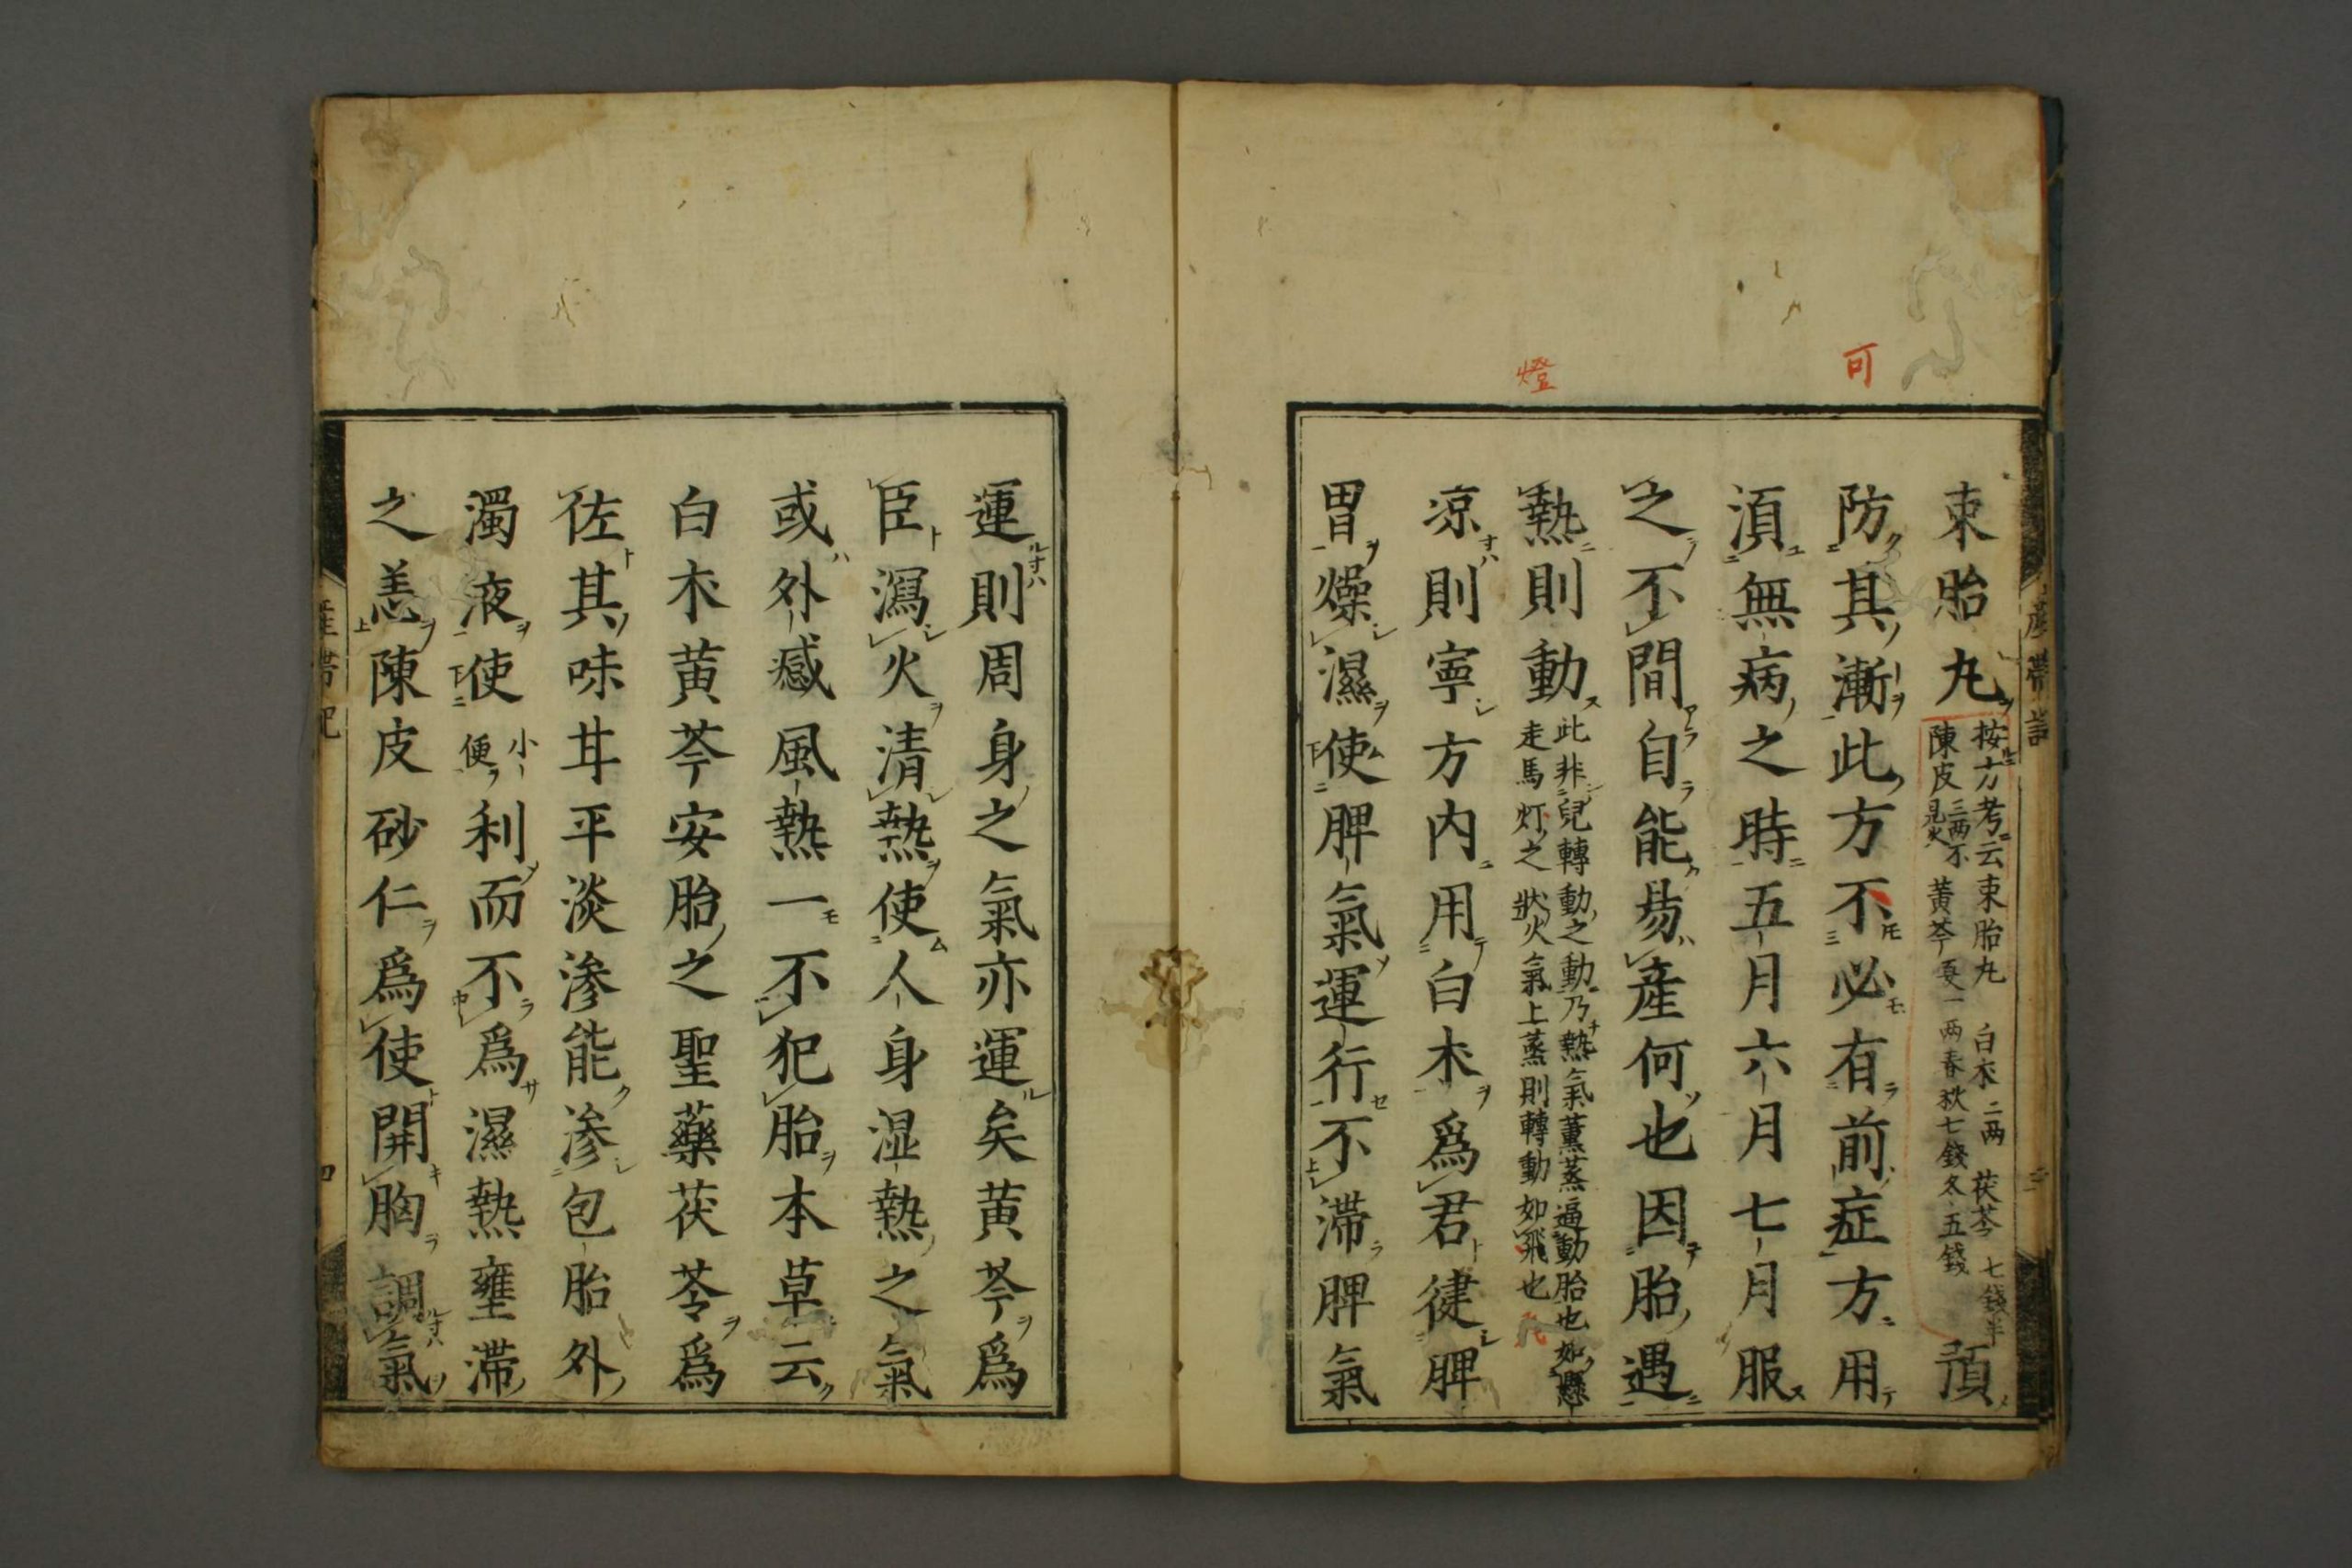 可
燈
束胎丸
按方考云束胎丸　白朮二两　茯苓七錢半
陳皮三两不見火　黄芩夏一两春秋七錢冬五錢
預
防其漸此方不必有前症方用
湏無病之時五月六月七月服
之不間自能易產何也因胎遇
熱則動
此非兒轉動之動乃熱氣薫蒸逼動胎也如懸
走馬灯之狀火氣上蒸則轉動如飛也
凉則寧方内用白朮爲君健脾
胃燥濕使脾氣運行不滯脾氣
運則周身之氣亦運矣黄芩爲
臣瀉火清熱使人身湿熱之氣
或外感風熱一不犯胎本草云
白朮黄芩安胎之聖藥茯苓爲
佐其味甘平淡渗能渗包胎外
濁液使小便利而不爲濕熱壅滯
之恙陳皮砂仁爲使開胸調氣
四